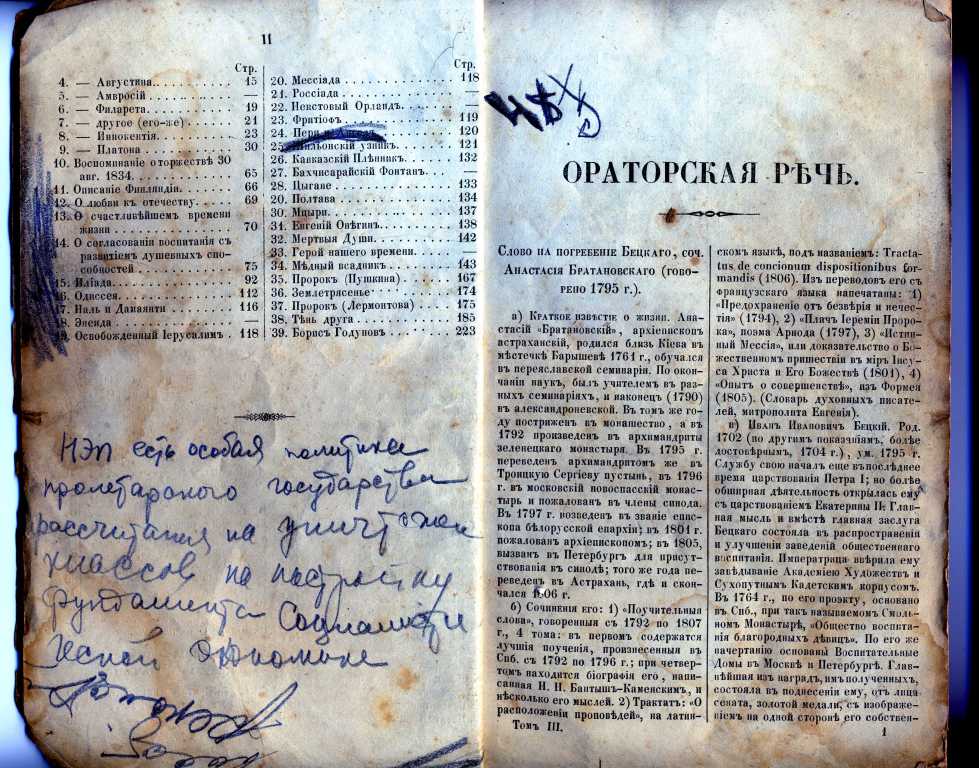 11
Стр.
4. — Августина 15
5. — Амвросій —
6. — Филарета 19
7. — другое (его-же) 21
8. — Иннокентія 23
9. — Платона 30
10. Воспоминаніе о торжествѣ 30
авг. 1834. 65
11. Описаніе Финляндіи. 66
12. О любви къ отечеству. 69
13. О счастливѣйшемъ времени
жизни 70
14. О согласованіи воспитанія съ
развитіемъ душевныхъ спо-
собностей 75
15. Иліада. 92
16. Одиссея. 112
17. Наль и Дамаянти 116
18. Энеида —
19. Освобожденный Іерусалимъ . 118
Стр.
20. Мессіада 118
21. Россіада —
22. Неистовый Орландъ. —
23. Фритіофъ. 119
24. Пери и Ангелъ 120
25. Шильонскій узникъ. 121
26. Кавказскій Плѣнникъ. 132
27. Бахчисарайскій Фонтанъ. —
28. Цыгане 133
20. Полтава 134
30. Мцыри. 137
31. Евгеній Онѣгинъ. 138
32. Мертвыя Души. 142
33. Герой нашего времени. —
34. Мѣдный всадникъ. 143
35. Пророкъ (Пушкина) 167
36. Землетрясенье 174
37. Пророкъ (Лермонтова) 175
38. Тѣнь друга 185
39. Борисъ Годуновъ 223
НЭП есть особая политика
пролетарского государства
рассчитания на
классов на постройку
фундамента Социалисти
ческой экономике
ОРАТОРСКАЯ РѢЧЬ.
Слово на погребеніе Бецкаго, соч.
Анастасія Братановскаго (гово-
рено 1795 г.).
а) Краткое извѣстіе о жизни. Ана-
стасій «Братановскій», архіепископъ
астраханскій, родился близь Кіева въ
мѣстечкѣ Барышевѣ 1761 г., обучался
въ переяславской семинаріи. По окон-
чаніи наукъ, былъ учителемъ въ раз-
ныхъ семинаріяхъ, и наконецъ (1790)
въ александроневской. Въ томъ же го-
ду постриженъ въ монашество, а въ
1792 произведенъ въ архимандриты
зеленецкаго монастыря. Въ 1795 г.
переведенъ архимандритомъ же въ
Троицкую Сергіеву пустынь, въ 1796
г. въ московскій новоспасскій монас-
тырь и пожалованъ въ члены синода.
Въ 1797 г. возведенъ въ званіе епис-
копа бѣлорусской епархіи; въ 1801 г.
пожалованъ архіепископомъ; въ 1805,
вызванъ въ Петербургъ для присут-
ствованія въ синодѣ; того же года пе-
реведенъ въ Астрахань, гдѣ и скон-
чался 1806 г.
б) Сочиненія его: 1) «Поучительныя
слова», говоренныя съ 1792 по 1807
г., 4 тома: въ первомъ содержатся
лучшія поученія, произнесенныя въ
Спб. съ 1792 по 1796 г.; при четвер-
томъ находится біографія его, напи-
санная Н. Н. Бантышъ-Каменскимъ, и
нѣсколько его мыслей. 2) Трактатъ: «О
расположеніи проповѣдей», на латин-
Томъ III.
скомъ языкѣ, подъ названіемъ: Tracta-
tus de concionum dispositionibus for-
mandis (1806). Изъ переводовъ его съ
французскаго языка напечатаны: 1)
«Предохраненіе отъ безвѣрія и нечес-
тія» (1794), 2) «Плачъ Іереміи Проро-
ка», поэма Арнода (1797), 3) «Истин-
ный Мессія», или доказательство о Бо-
жественномъ пришествіи въ міръ Іису-
са Христа и Его Божествѣ (1801), 4)
«Опытъ о совершенствѣ», изъ Формея
(1805). (Словарь духовныхъ писате-
лей, митрополита Евгенія).
в) Иванъ Ивановичъ Бецкій. Род.
1702 (по другимъ показаніямъ, болѣе
достовѣрнымъ, 1704 г.), ум. 1795 г.
Службу свою началъ еще въ послѣднее
время царствованія Петра I; но болѣе
обширная дѣятельность открылась ему
съ царствованіемъ Екатерины II: Глав-
ная мысль и вмѣстѣ главная заслуга
Бецкаго состояла въ распространеніи
и улучшеніи заведеній общественнаго
воспитанія. Императрица ввѣрила ему
завѣдываніе Академіею Художествъ и
Сухопутнымъ Кадетскимъ корпусомъ.
Въ 1764 г., по его проэкту, основано
въ Спб., при такъ называемомъ Смоль-
номъ Монастырѣ, «Общество воспита-
нія благородныхъ дѣвицъ». По его же
начертанію основаны Воспитательные
Домы въ Москвѣ и Петербургѣ. Глав-
нѣйшая изъ наградъ, имъ полученныхъ,
состояла въ поднесеніи ему, отъ лица
сената, золотой медали, съ изображе-
ніемъ на одной сторонѣ его собствен-
1